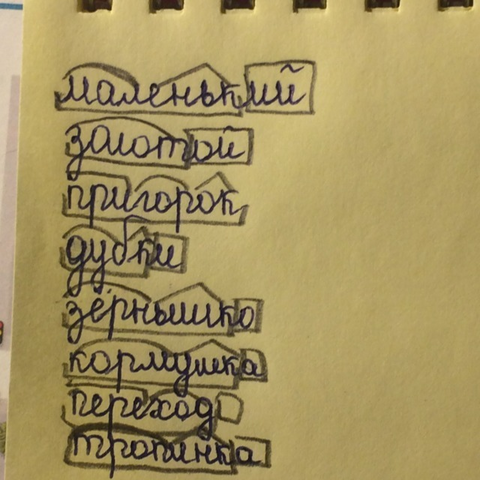 маленький
золотой
пригорок
дубки
зёрнышко
кормушка
переход
тропинка